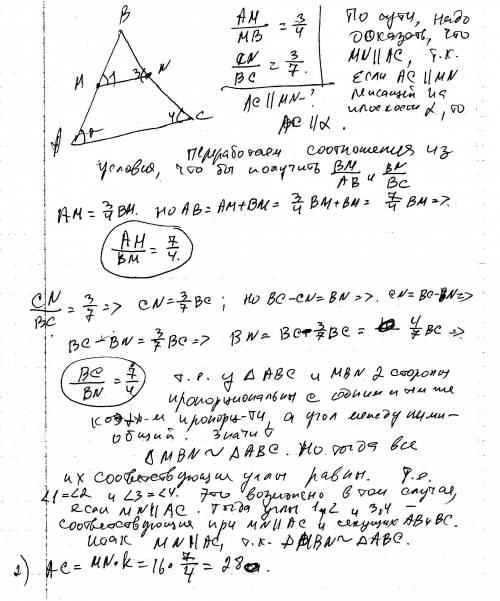 B
M 1 3 N
A 2 4 C
AM/MB = 3/4
CN/BC = 3/7.
AC || MN - ?
По сути, надо
доказать, что
MN || AC, т.к.
если AC || MN
лежащей на
плоскости α, то
AC || α.
Переработаем соотношения из
условия, что бы получить BM/AB и BN/BC
AM = 3/4 BM. Но AB = AM + BM = 3/4 BM + BM = 7/4 BM =>.
AH/BM = 7/4.
CN/BC = 3/7 => CN = 3/7 BC ; но BC - CN = BN =>. CN = BC - BN =>
BC - BN = 3/7 BC => BN = BC - 3/7 BC = 4/7 BC =>
BC/BN = 7/4 т.е. у Δ ABC и MBN 2 стороны
пропорциональны с одним и тем же
коэф-м пропорц-ти, а угол между ними -
общий. Значит
Δ MBN ~ Δ ABC. Но тогда все
их соответствующие углы равны. Т.е.
∠1 = ∠2 и ∠3 = ∠4. Это возможно в том случае,
если MN || AC. Тогда углы 1,2 и 3,4 -
соответствующие при MN || AC и секущих AB и BC.
MN || AC, т.к. Δ MBN ~ Δ ABC.
2) AC = MN · k = 16 · 7/4 = 28